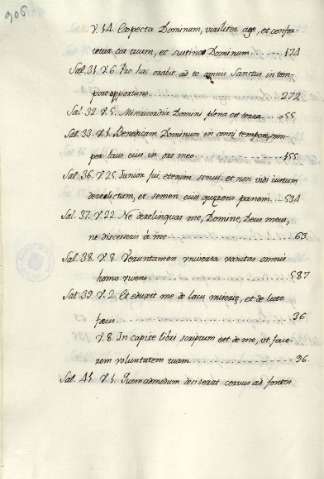 906
V. 14. Expecta Dominum, viriliter age, et confor
tetur cor tuum, et sustine Dominum ... 174
Sal. 31. V. 6. Pro hac orabit ad te omnis Sanctus in tem
pore opportuno ... 272
Sal. 32. V. 5. Misericordia Domini plena est terra ... 55
Sal. 33. V. 1. Benedicam Dominum in omni tempore, sem
per laus eius in ore meo ... 455
Sal. 36. V. 25. Iunior fui, etenim senui, et non vidi iustum
derelictum, et semen eius quærens panem ... 594
Sal. 37. V. 22. Ne derelinquas me, Domine, Deus meus,
ne discesseris à me ... 63
Sal. 38. V. 8. Veruntamen universa vanitas omnis
homo vivens ... 587
Sal. 39. V. 2. Et eduxit me de lacu miseriæ, et de luto
fæcis ... 36
V. 8. In capite libri scriptum est de me, ut face
rem voluntatem tuam ... 36
Sal. 41. V. 1. Quemadmodum desiderat cervus ad fontes